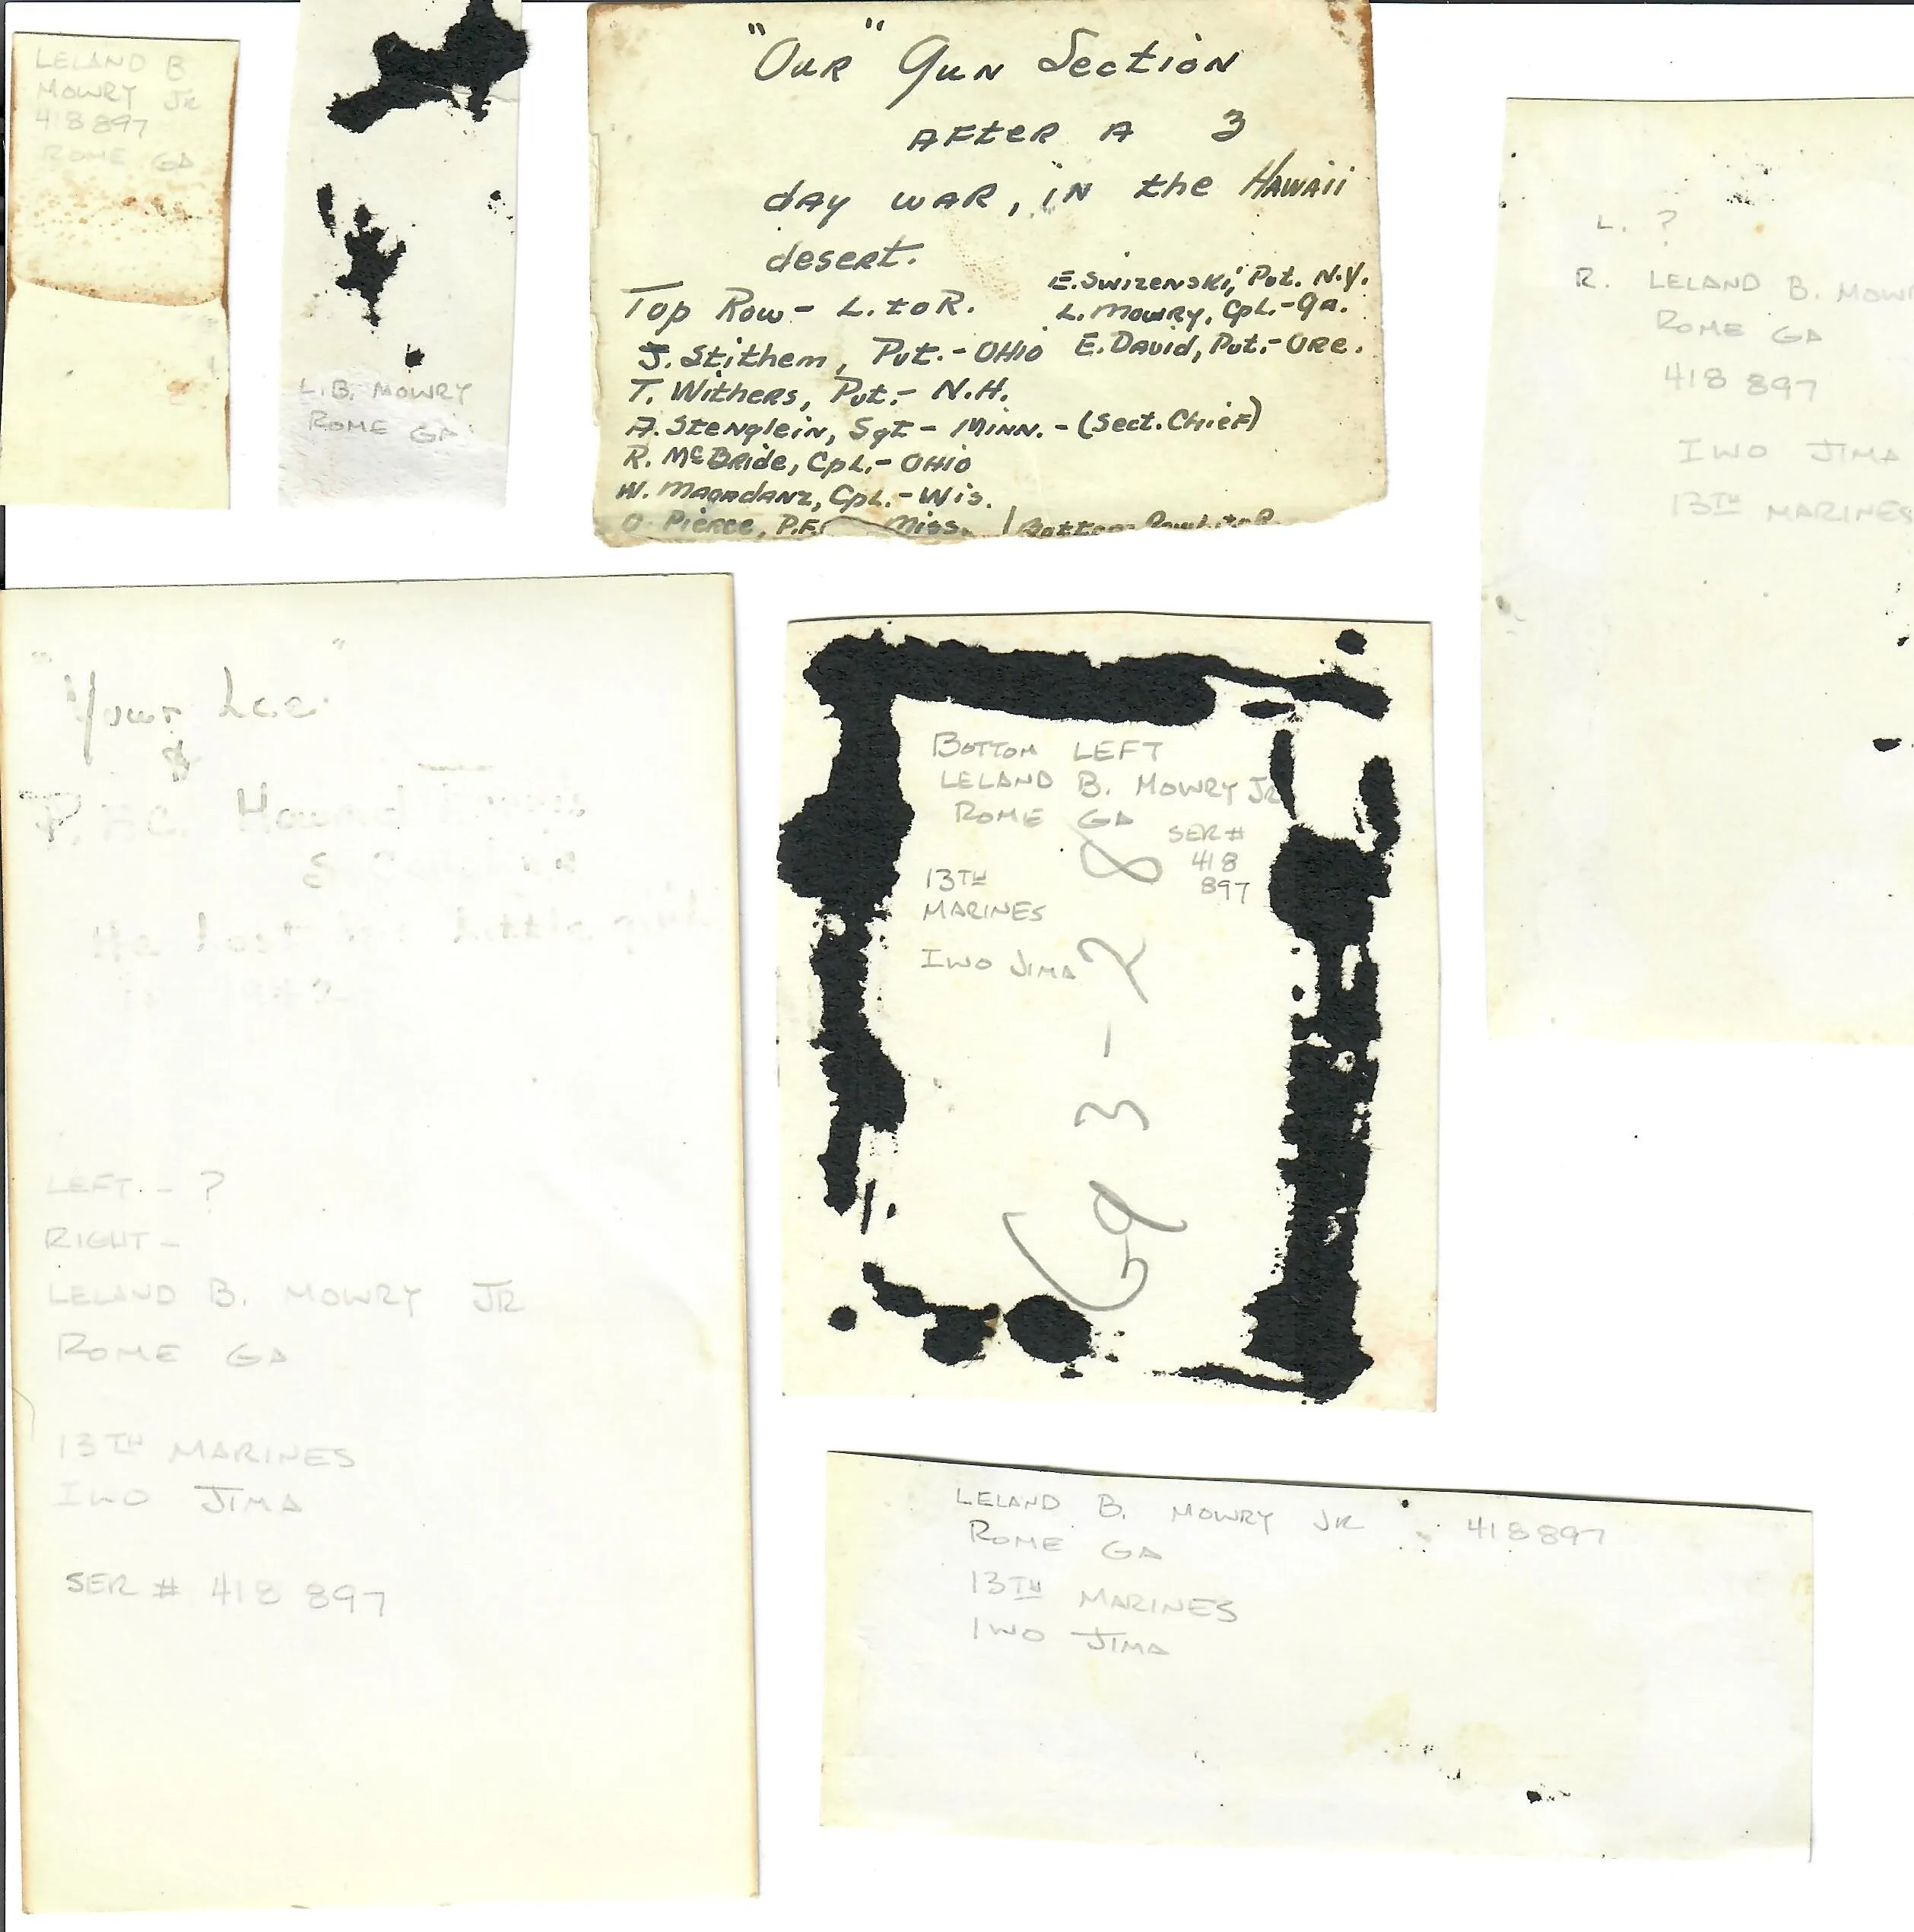 LELAND B
MOWRY JR
418 897
ROME GA
L.B. MOWRY
ROME GA
"OUR" GUN Section
AFTER A 3
dAY WAR, IN the HAWAII
desert.
Top Row - L. to R.
J. Stithem, Pvt. - OHIO
T. Withers, Pvt. - N.H.
A. Stenglein, Sgt - MINN. - (Sect. Chief)
R. McBride, Cpl. - OHIO
W. Magadanz, Cpl. - Wis.
O. Pierce, P.F. Miss.
Bottom Row L to R
E. Swizenski, Pvt. N.Y.
L. Mowry, Cpl. - Ga.
E. David, Pvt. - Ore.
L. ?
R. LELAND B. MOWR
ROME GA
418 897
IWO JIMA
13TH MARINES
"Your Lee"
&
P.F.C. Howard
He lost his little girl
in
LEFT - ?
RIGHT -
LELAND B. MOWRY JR
ROME GA
13TH MARINES
IWO JIMA
SER # 418 897
BOTTOM LEFT
LELAND B. MOWRY JR
ROME GA
SER #
418
897
13TH
MARINES
IWO JIMA
LELAND B. MOWRY JR 418897
ROME GA
13TH MARINES
IWO JIMA